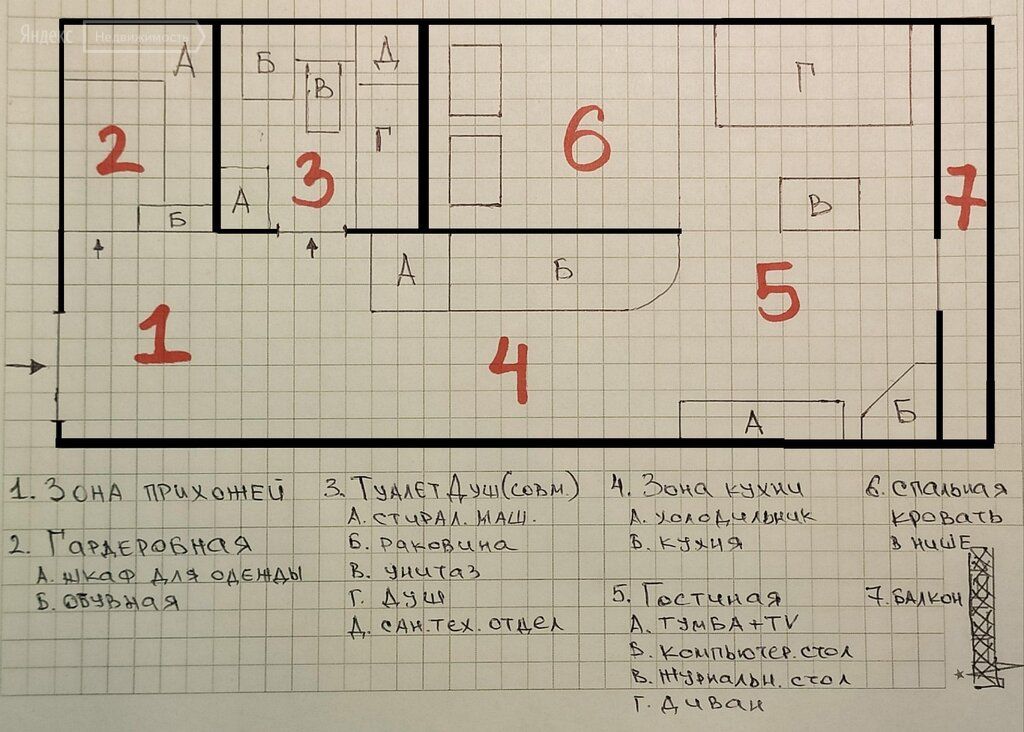 Яндекс Недвижимость
А Б В Д
2 Г 6 Г
3 7
А В
Б
1 А Б 5
4
А Б
1. Зона прихожей
2. Гардеробная
А. шкаф для одежды
Б. обувная
3. Туалет Душ(совм.)
А. стирал. маш.
Б. раковина
В. унитаз
Г. душ
Д. сан.тех.отдел
4. Зона кухни
А. холодильник
Б. кухня
5. Гостиная
А. тумба+TV
Б. компьютер.стол
В. журнальн. стол
Г. диван
6. спальная
кровать
в нише
7. балкон